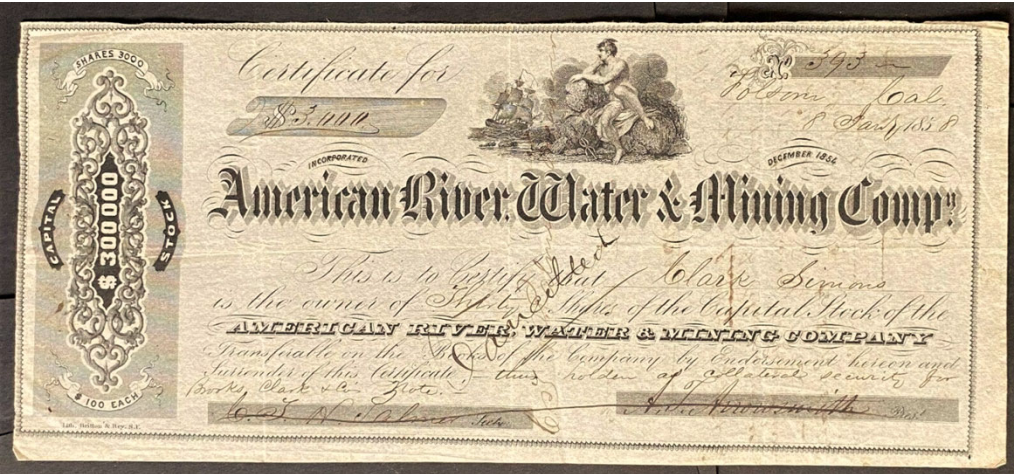 SHARES 3000
CAPITAL
$300000
STOCK
$100 EACH
Certificate for
$3,000
No. 393
Folsom, Cal.
8 Jany 1858
INCORPORATED
DECEMBER 1854
American River. Water & Mining Compy.
This is to Certify that Clark Simons
is the owner of Thirty Shares of the Capital Stock of the
AMERICAN RIVER, WATER & MINING COMPANY
Transferable on the Books of the Company by Endorsement hereon and
Surrender of this Certificate, thus holden as collateral security for
Books, Clark & Co. Note.
Cancelled
Secty.
A. P. Arrowsmith Prest.
Lith. Britton & Rey, S.F.